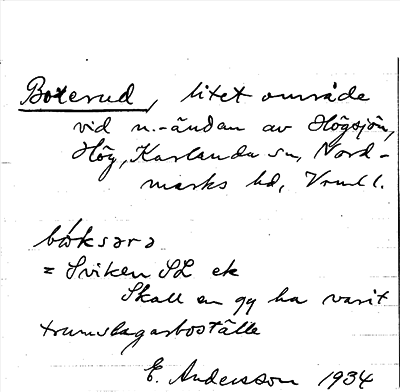 Boxerud, litet område
vid n.-ändan av Högsjön,
Hög, Karlanda sn, Nord-
marks hd, Vrml l.
båksərə
= Sviken SL ek
Skall en gg ha varit
trumslagarboställe
E. Andersson 1934